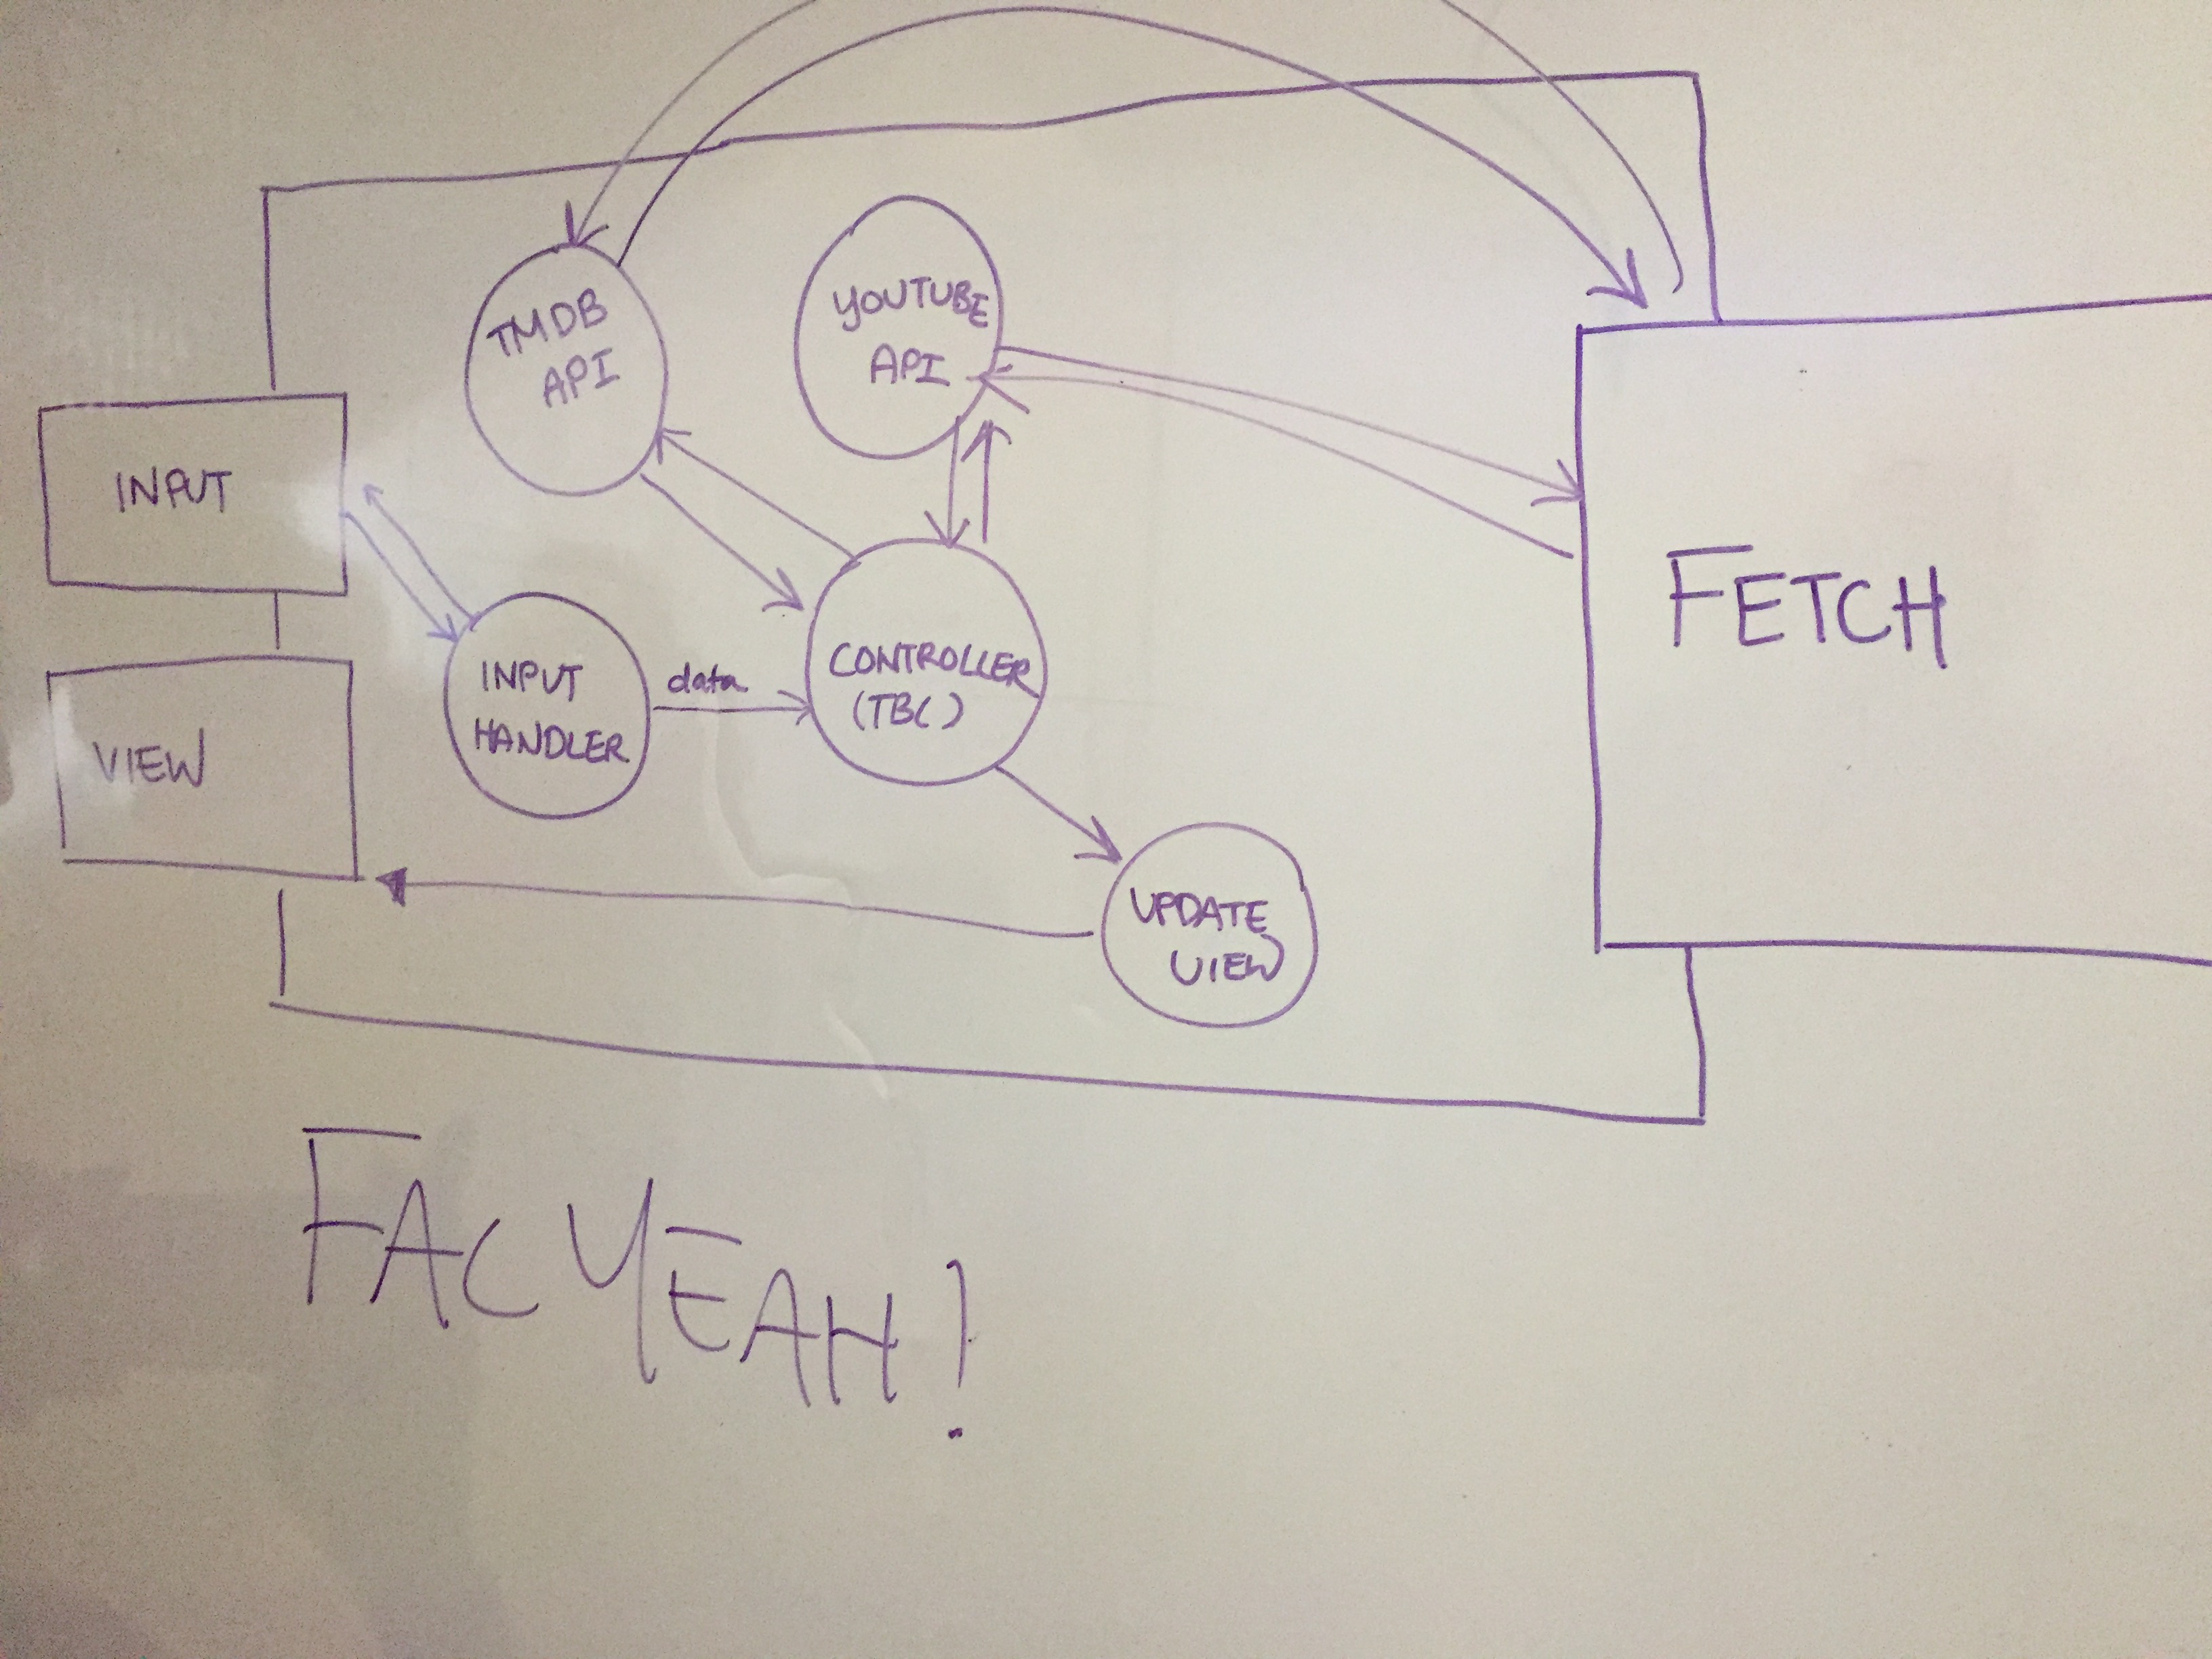 TMDB
API
YOUTUBE
API
INPUT
FETCH
INPUT
HANDLER
data
CONTROLLER
(TBC)
VIEW
UPDATE
VIEW
FAC YEAH!